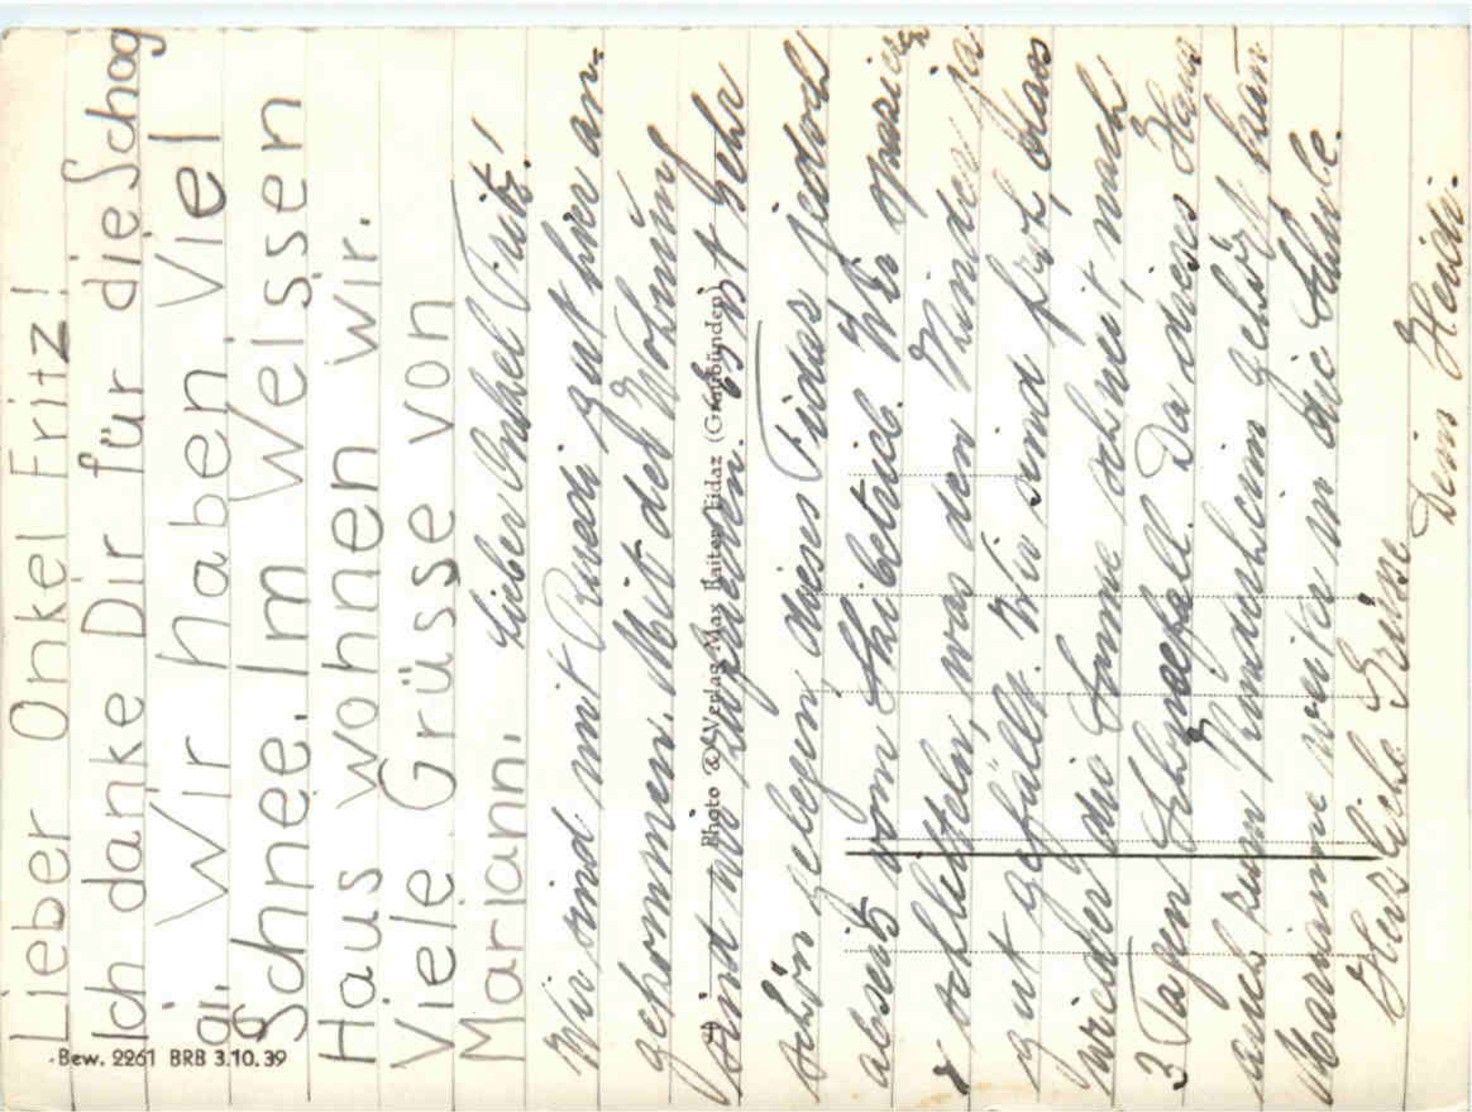 Lieber Onkel Fritz!
Ich danke Dir für die Schog
gi. Wir haben Viel
Schnee. Im Weissen
Haus wohnen wir.
Viele Grüsse von
Mariann.
Lieber Onkel Fritz!
Wir sind mit Ruedi gut hier an-
gekommen. Mit der Wohnung
sind wir zufrieden. Es ist sehr
schön gelegen dieses Fidaz jedoch
abseits vom Skibetrieb. Wir spazieren
& schlitteln, was den Kindern ja
gut gefällt. Wir sind froh, dass
wieder die Sonne scheint, nach
3 Tagen Schneefall. Da dieses Haus
auch zum Kinderheim gehört kann
Marianne weiter in die Schule.
Herzliche Grüsse
Dein Heidi.
Photo & Verlag Max Fidaz (Graubünden)
Bew. 2261 BRB 3.10.39